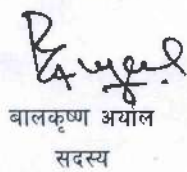 बालकृष्ण अर्याल
सदस्य